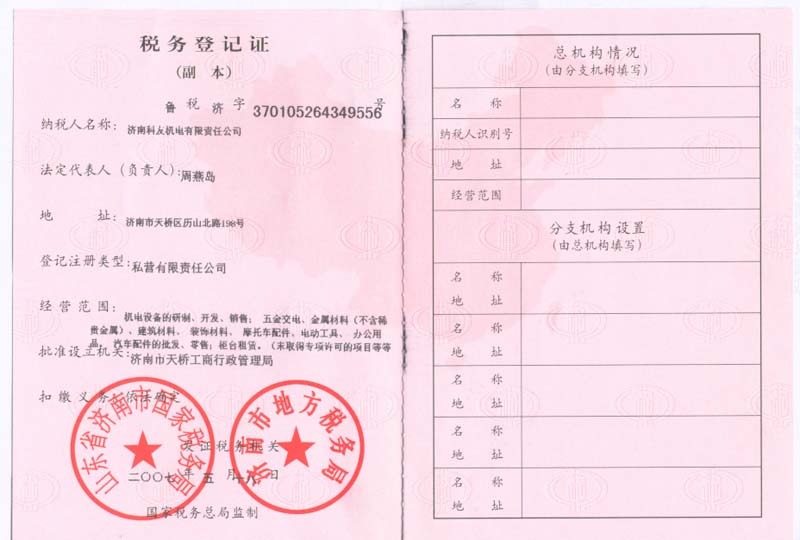 税务登记证
(副 本)
鲁 税 济 字 370105264349556 号
纳税人名称: 济南科友机电有限责任公司
法定代表人(负责人): 周燕岛
地 址: 济南市天桥区历山北路198号
登记注册类型: 私营有限责任公司
经营范围: 机电设备的研制、开发、销售; 五金交电、金属材料(不含稀
贵金属)、建筑材料、 装饰材料、 摩托车配件、电动工具、 办公用
品, 汽车配件的批发、零售;柜台租赁。(未取得专项许可的项目等等
批准设立机关: 济南市天桥工商行政管理局
扣缴义务 依法确定
山东省济南市国家税务局
济南市地方税务局
发证税务机关
二〇〇七 年 五 月 十八 日
国家税务总局监制
总机构情况
(由分支机构填写)
名 称
纳税人识别号
地 址
经营范围
分支机构设置
(由总机构填写)
名 称
地 址
名 称
地 址
名 称
地 址
名 称
地 址
名 称
地 址